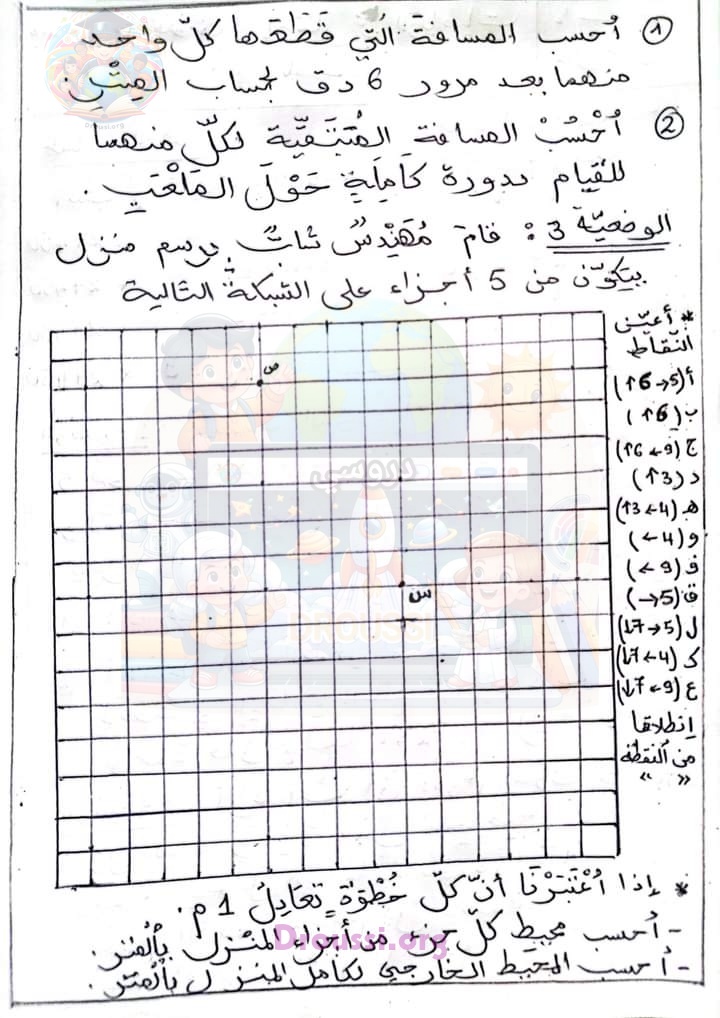 ① أحسب المسافة الّتي قَطَعَها كلّ واحد
منهما بعد مرور 6 دق لحساب المِتْر.
② أُحْسُبْ المسافة المُتَبَقِيَّة لكلّ منهما
للقيام بدورة كَامِلَةٍ حَوْلَ المَلْعَبِ.
الوضعيّة 3: قامَ مُهَنْدِسٌ شابٌ برسم منزل
يتكوّن من 5 أجزاء على الشبكة التالية
* أعيّن
النّقاط
أ(5→ 6↑)
ب(6↑)
ج(9← 6↑)
د(3↑)
هـ(4← 3↑)
و(4←)
ف(9←)
ق(5→)
ل(5→ 7↓)
ك(4← 7↓)
ع(9← 7↓)
إنطلاقا
من النقطة
" "
ص
س
دروسي
DROUSSI
Droussi.org
* إذا اُعْتَبَرْنَا أنّ كلّ خُطْوَةٍ تعَادِلُ 1 م.
- أحسب محيط كلّ جزء من أجزاء المنزل بالمتر.
Droussi.org
- أحسب المحيط الخارجي لكامل المنزل بالمتر.